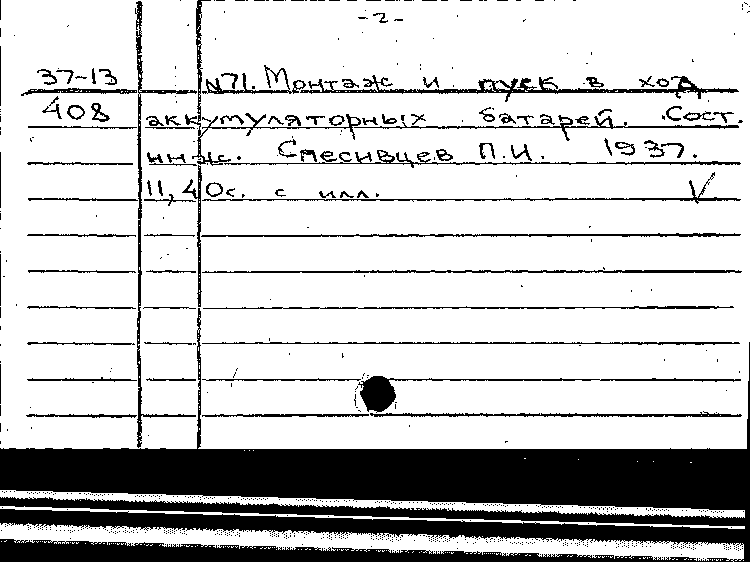 -2-
37-13 N71. Монтаж и пуск в ход
408 аккумуляторных батарей. Сост.
инж. Спесивцев П.И. 1937.
11, 40с. с илл. V